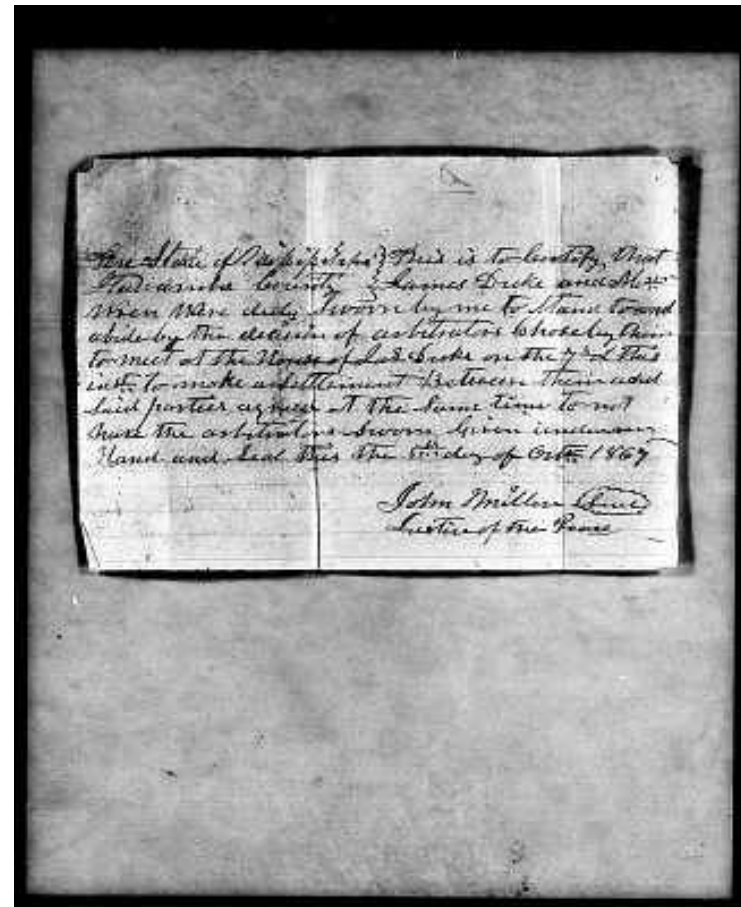 The State of Mississippi } This is to Certify that
County } James Duke and
wren were duly Sworn by me to Stand to and
abide by the decision of arbitrators Chose by them
to meet at the House of Jas Duke on the this
inst. to make a Settlement Between them and
Said parties agree at the Same time to not
have the arbitrators Sworn Given under my
Hand and Seal this the day of Octr 1867
John Miller Seal
Justice of the Peace